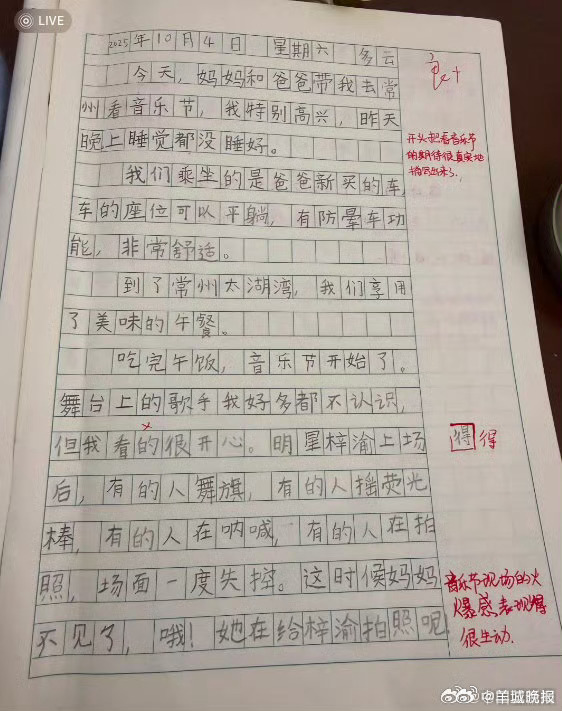 LIVE
2025年10月4日 星期六 多云
今天,妈妈和爸爸带我去常
州看音乐节,我特别高兴,昨天
晚上睡觉都没睡好。
开头把看音乐节
的期待很真实地
描写出来了。
我们乘坐的是爸爸新买的车,
车的座位可以平躺,有防晕车功
能,非常舒适。
到了常州太湖湾,我们享用
了美味的午餐。
吃完午饭,音乐节开始了。
舞台上的歌手我好多都不认识,
但我看的很开心。明星梓渝上场
得 得
后,有的人舞旗,有的人摇荧光
棒,有的人在呐喊,有的人在拍
照,场面一度失控。这时候妈妈
不见了,哦!她在给梓渝拍照呢
音乐节现场的火
爆感表现得
很生动.
@羊城晚报